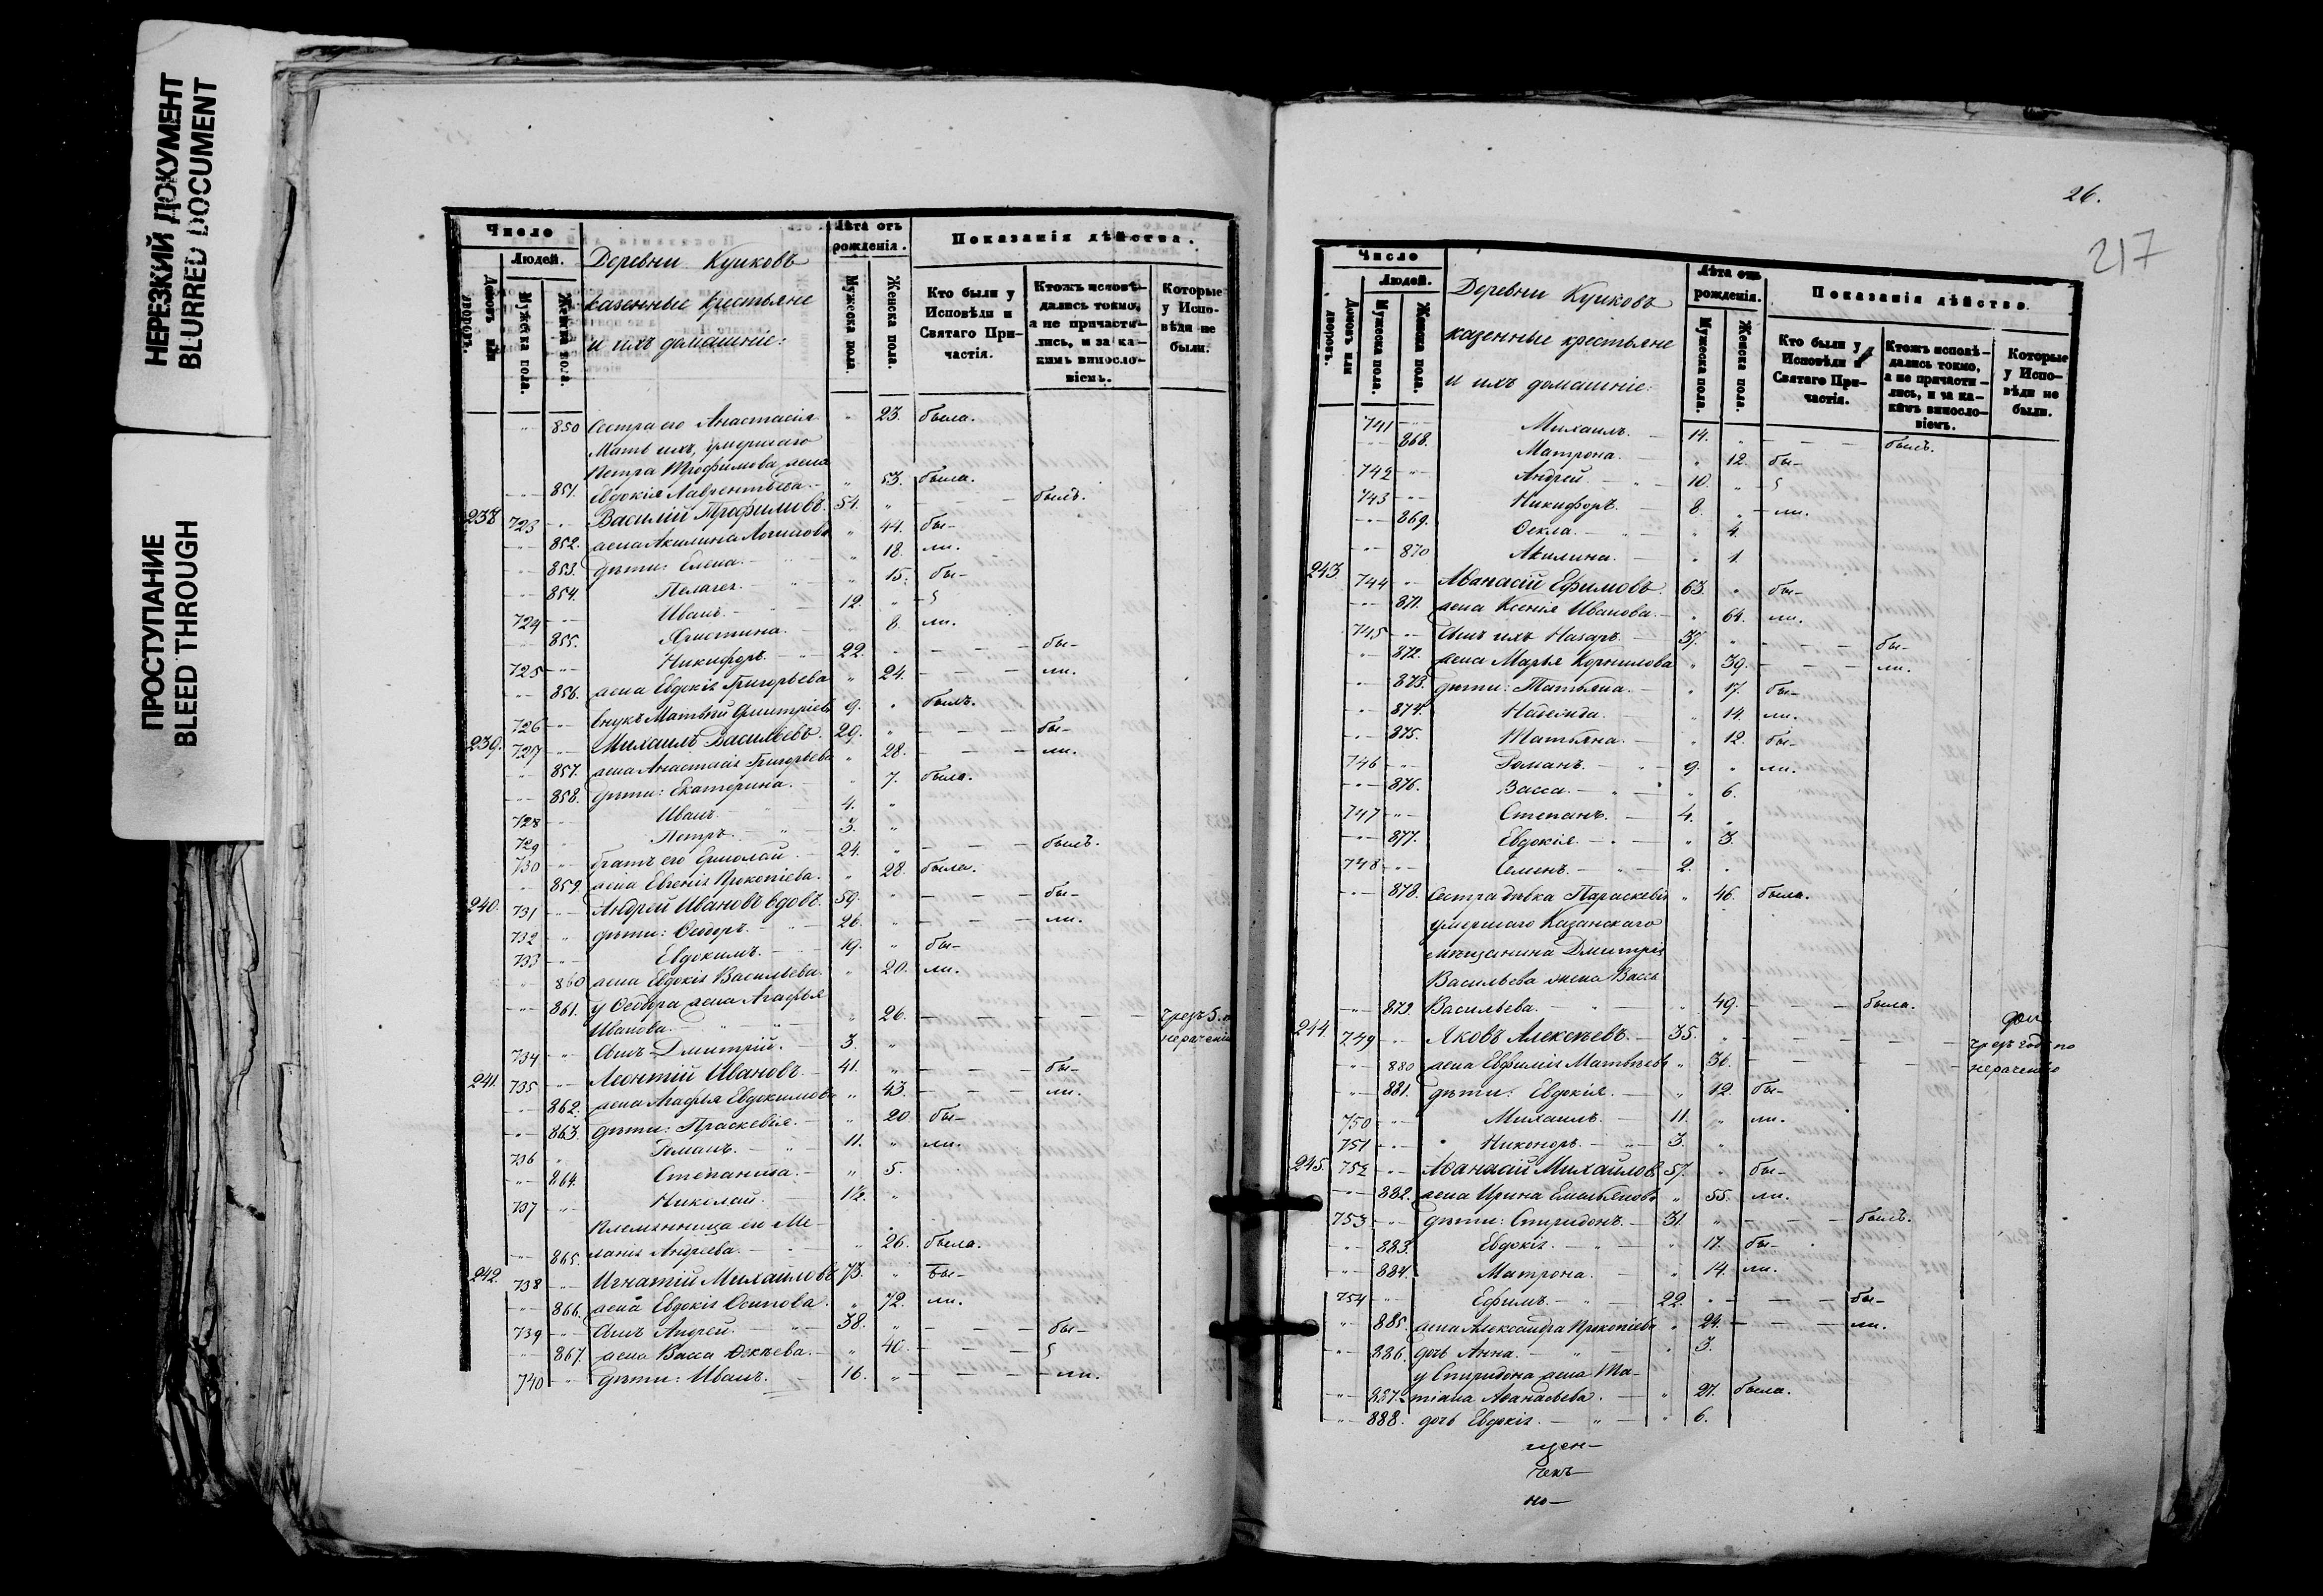 НЕРЕЗКИЙ ДОКУМЕНТ
BLURRED DOCUMENT
ПРОСТУПАНИЕ
BLEED THROUGH
Число
Людей.
Домовъ или дворовъ.
Мужеска пола.
Женска пола.
Деревни Куиковъ
казенные крестьяне
и ихъ домашніе:
Лѣта отъ рожденія.
Мужеска пола.
Женска пола.
Показанія дѣйства.
Кто были у Исповѣди и Святаго При-частія.
Ктожъ исповѣ-дались токмо, а не причасти-лись, и за ка-кимъ винословіемъ.
Которые у Испо-вѣди не были.
850 Сестра его Анастасія 23. была.
Мать ихъ, умершаго
Петра Трофимова жена
851. Евдокія Лаврентьева 53. была.
238 723 Василій Трофимовъ. 54. былъ.
852. жена Акилина 44. бы-
853. дѣти: Елена. 18. ли.
854. Пелагея 15. бы-
724 Иванъ. 12.
855. Христина. 8. ли.
725 Никифоръ. 22. бы-
856. жена Евдокія Григорьева 24. ли.
726 внукъ Матвѣй Дмитріевъ 9. былъ.
239. 727 Михаилъ Васильевъ. 29. бы-
857. жена Анастасія Григорьева 28. ли.
858. дѣти: Екатерина. 7. была.
728 Иванъ. 4.
729 Петръ. 3.
730 братъ его Ермолай 24. былъ.
859 жена Евгенія Прокопіева. 28. была.
240. 731 Андрей Ивановъ вдовъ. 59. бы-
732 дѣти: Ѳеодоръ. 26. ли.
733 Евдокимъ. 19. бы-
860 жена Евдокія Васильева. 20. ли.
861. у Ѳеодора жена Агафья
Иванова. 26. чрезъ 5. по
734 Сынъ Дмитрій. 3. нераченію
241. 735 Леонтій Ивановъ. 41. бы-
862. жена Агафья Евдокимова 43. ли.
863. дѣти: Праскевія. 20. бы-
736 Романъ. 11. ли.
864. Степанида. 5.
737 Николай. 1½.
Племянница ея Ме-
865. ланія Андреева. 26. была.
242. 738 Игнатій Михайловъ 73. бы-
866. жена Евдокія Осипова. 72. ли.
739 Сынъ Андрей. 38. бы-
867. жена Васса 40.
740 дѣти: Иванъ. 16. ли.
26.
217
Число
Людей.
Домовъ или дворовъ.
Мужеска пола.
Женска пола.
Деревни Куиковъ
казенные крестьяне
и ихъ домашніе:
Лѣта отъ рожденія.
Мужеска пола.
Женска пола.
Показанія дѣйства.
Кто были у Исповѣди и Святаго При-частія.
Ктожъ исповѣ-дались токмо, а не причасти-лись, и за ка-кимъ винословіемъ.
Которые у Испо-вѣди не были.
741 Михаилъ. 14. былъ.
868. Матрона. 12. бы-
742 Андрей. 10.
743 Никифоръ. 8. ли.
869. Ѳекла. 4.
870 Акилина. 1.
243. 744 Аѳанасій Ефимовъ. 63. бы-
871. жена Ксенія Иванова. 64. ли.
745 Сынъ ихъ Назаръ. 37. бы-
872. жена Марья Корнилова 39. ли.
873. дѣти: Татьяна. 17. бы-
874. Надежда. 14. ли.
875. Татьяна. 12. бы-
746 Романъ. 9. ли.
876. Васса. 6.
747 Степанъ. 4.
877. Евдокія. 3.
748 Семенъ. 2.
878. Сестра дѣвка Параскевія 46. была.
умершаго Казанскаго
мѣщанина Дмитрія
Васильева жена Васса
879. Васильева. 49. была.
244. 749 Яковъ Алексѣевъ. 35. чрезъ годъ по
880 жена Евфимія Матвѣева 36. нераченію
881. дѣти: Евдокія. 12. бы-
750 Михаилъ. 11. ли.
751 Никоноръ. 3.
245. 752 Аѳанасій Михайловъ 57. бы-
882. жена Ирина Емельянова 55. ли.
753 дѣти: Спиридонъ. 31. былъ.
883. Евдокія. 17. бы-
884. Матрона. 14. ли.
754 Ефимъ. 22. бы-
885. жена Александра Прокопіева 24. ли.
886. дочь Анна. 3.
у Спиридона жена Та-
887. тіана Аѳанасьева. 27. была.
888. дочь Евдокія. 6.
щен-
но-